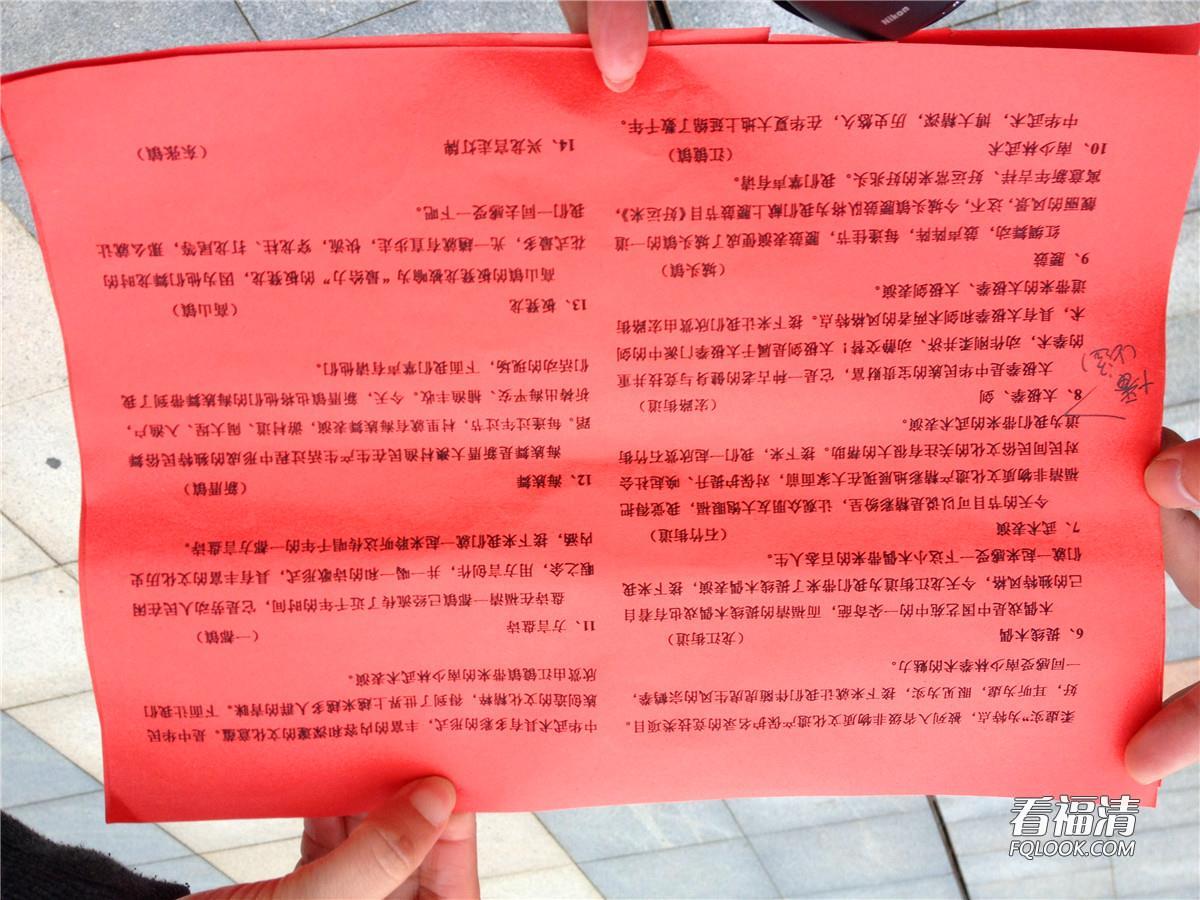 柔虚实”为特点,被列入省级非物质文化遗产保护名录的竞技类项目。
好,耳听为虚,眼见为实,接下来就让我们伴随虎虎生风的宗鹤拳,
一同感受南少林拳术的魅力。
6、提线木偶 (龙江街道)
木偶戏是中国艺苑中的一朵奇葩,而福清的提线木偶戏也有着自
己的独特风格,今天龙江街道为我们带来了提线木偶表演,接下来我
们就一起来感受一下这小木偶带来的百态人生。
7、武术表演 (石竹街道)
今天的节目可以说是精彩纷呈,让观众朋友大饱眼福,我觉得把
福清非物质文化遗产精彩地展现在大家面前,对保护提升、唤起社会
对民间民俗文化的关注有很大的帮助。接下来,我们一起欣赏石竹街
道为我们带来的武术表演。
8、太极拳、剑 (宏路街道)
太极拳是中华民族的宝贵财富,它是一种古老的健身与竞技并重
的拳术,动作刚柔并济、动静交替!太极剑是属于太极拳门派中的剑
术,具有太极拳和剑术两者的风格特点。接下来让我们欣赏由宏路街
道带来的太极拳、太极剑表演。
9、腰鼓 (城头镇)
红绸舞动,鼓声阵阵,每逢佳节,腰鼓表演便成了城头镇的一道
靓丽的风景,这不,今城头镇腰鼓队将为我们献上腰鼓节目《好运来》,
寓意新年吉祥、好运常来的好兆头。我们掌声有请。
10、南少林武术 (江镜镇)
中华武术,博大精深,历史悠久,在华夏大地上延绵了数千年。
中华武术具有多彩的形式,丰富的内容和深邃的文化意蕴。是中华民
族创造的文化精粹,得到了世界上越来越多人群的青睐。下面让我们
欣赏由江镜镇带来的南少林武术表演。
11、方言盘诗 (一都镇)
盘诗在福清一都镇已经流传了近千年的时间,它是劳动人民在闲
暇之余,用方言创作,并一唱一和的诗歌形式,具有丰富的文化历史
内涵,接下来我们就一起来聆听这传唱千年的一都方言盘诗。
12、海族舞 (新厝镇)
海族舞是新厝大澳村渔民在生产生活过程中形成的独特民俗舞
蹈。每逢过年过节,村里就有海族舞表演,游村道、闹大埕、入渔户,
祈祷出海平安、捕渔丰收。今天,新厝镇也将他们的海族舞带到了我
们活动的现场,下面我们掌声有请他们。
13、板凳龙 (高山镇)
高山镇的板凳龙被喻为“最给力”的板凳龙,因为他们舞龙时的
花式最多,光一趟就有步走,快跑,穿龙柱、打龙尾等,那么就让
我们一同去感受一下吧。
14、兴龙宫走灯牌 (东张镇)
Nikon
看福清
FQLOOK.COM